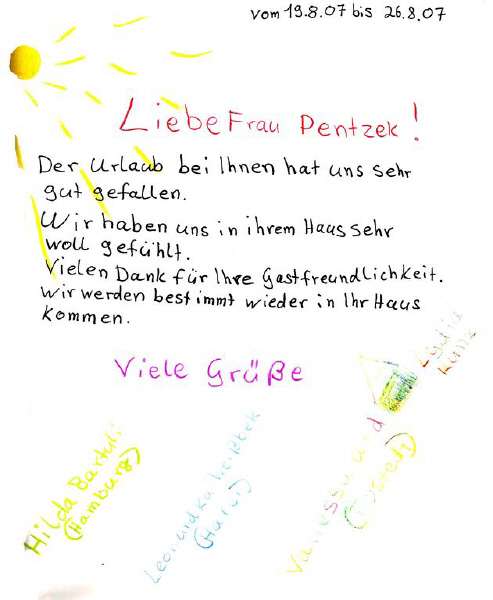 vom 19.8.07 bis 26.8.07
Liebe Frau Pentzek!
Der Urlaub bei Ihnen hat uns sehr
gut gefallen.
Wir haben uns in ihrem Haus sehr
woll gefühlt.
Vielen Dank für Ihre Gastfreundlichkeit.
Wir werden bestimmt wieder in Ihr Haus
kommen.
Viele Grüße
Hilda Bartuli
(Hamburg)
Leon und
Vanessa und
Lydia